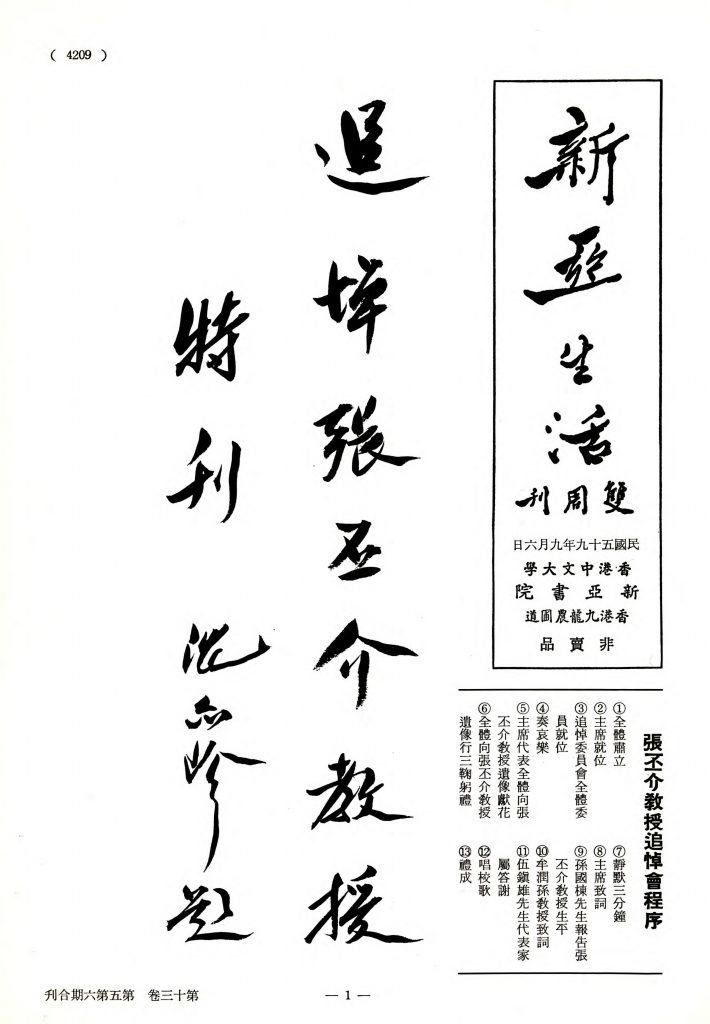 ( 4209 )
新亞生活
雙周刊
民國五十九年九月六日
香港中文大學
新亞書院
香港九龍農圃道
非賣品
追悼張丕介教授
特刊
沈亦珍題
張丕介教授追悼會程序
①全體肅立
②主席就位
③追悼委員會全體委
員就位
④奏哀樂
⑤主席代表全體向張
丕介教授遺像獻花
⑥全體向張丕介教授
遺像行三鞠躬禮
⑦靜默三分鐘
⑧主席致詞
⑨孫國棟先生報告張
丕介教授生平
⑩牟潤孫教授致詞
⑪伍鎮雄先生代表家
屬答謝
⑫唱校歌
⑬禮成
第十三卷 第五第六期合刊
— 1 —